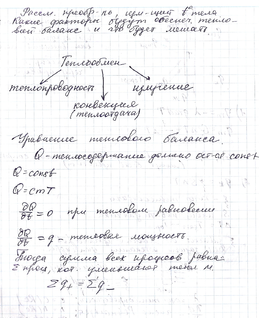 Рассм. преобр-ль, цилиндр-й тела
Какие факторы будут обеспеч. тепло-
вой баланс и что будет мешать.
Теплообмен
теплопроводность излучение
конвекция
(теплоотдача)
Уравнение теплового баланса
Q - теплосодержание должно ост-ся const
Q = const
Q = cmT
∂Q/∂t = 0 при тепловом равновесии
∂Q/∂t = q - тепловые мощность
Тогда сумма всех процессов равна
Σ проц, кот. уменьшают тепл м.
Σq₊ = Σq₋